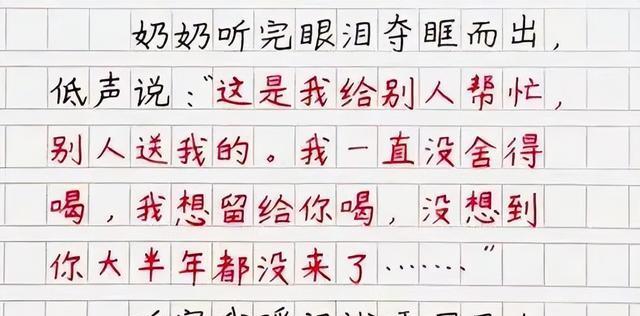 奶奶听完眼泪夺眶而出，
低声说：“这是我给别人帮忙，
别人送我的。我一直没舍得
喝，我想留给你喝，没想到
你大半年都没来了……”